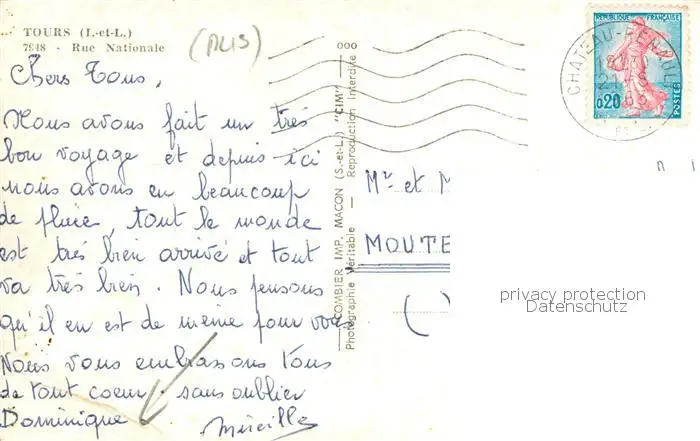 TOURS (I.-et-L.)
7848 - Rue Nationale
Chers Tous,
Nous avons fait un très
bon voyage et depuis ici
nous avons eu beaucoup
de pluie, tout le monde
est très bien arrivé et tout
va très bien. Nous pensons
qu'il en est de même pour vous
Nous vous embrassons Tous
de tout coeur. sans oublier
Dominique
Mireille
COMBIER IMP. MACON (S.-et-L.) "CIM"
Photographie Véritable — Reproduction Interdite
REPUBLIQUE FRANÇAISE
0,20
POSTES
CHATEAU-RENAULT
Mr et M
MOUTE
(
privacy protection
Datenschutz